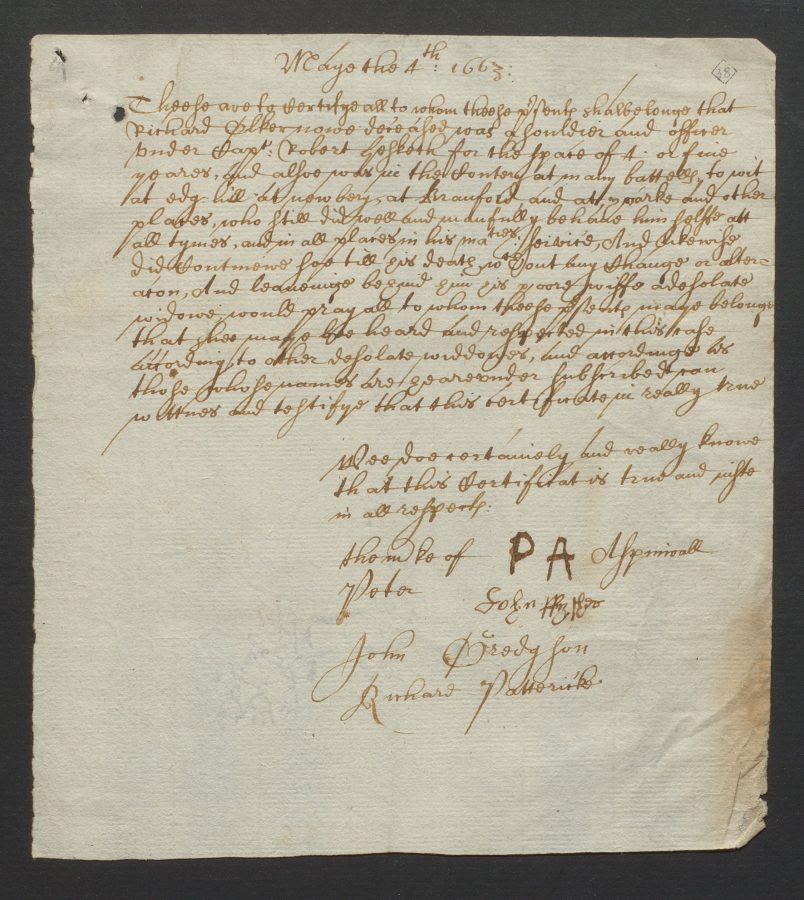 Maye the 4th: 1663:
28
Theese are to Certifye all to whom theese psents shalbelonge that
Richard Olkernowe deceased was a shouldier and officer
vnder Capt: Robert Hesketh for the space of 4: or fiue
yeares, and alsoe was in the Conters at many battells, to wit
at edg-hill at newbery, at Branford and at yorke and other
places, who still did well and manfully behaue him selfe att
all tymes, and in all places in his maties: seruice, And likewise
did Continewe soe till his death wthout any Change or alter=
acon, And leaueinge behind him his poore wiffe a desolate
widowe, would pray all to whom theese psents maye belonge
that shee maye bee heard and respected in this case
According to other desolate widdowes, and accordinge as
those whose names are heareunder subscribed can
wittnes and testifye that this certificate in really true
Wee doe certainely and really knowe
that this Certificat is true and juste
in all respects:
the mke of PA Aspinwall
Peter
John
John Gredgson
Richard Patterick